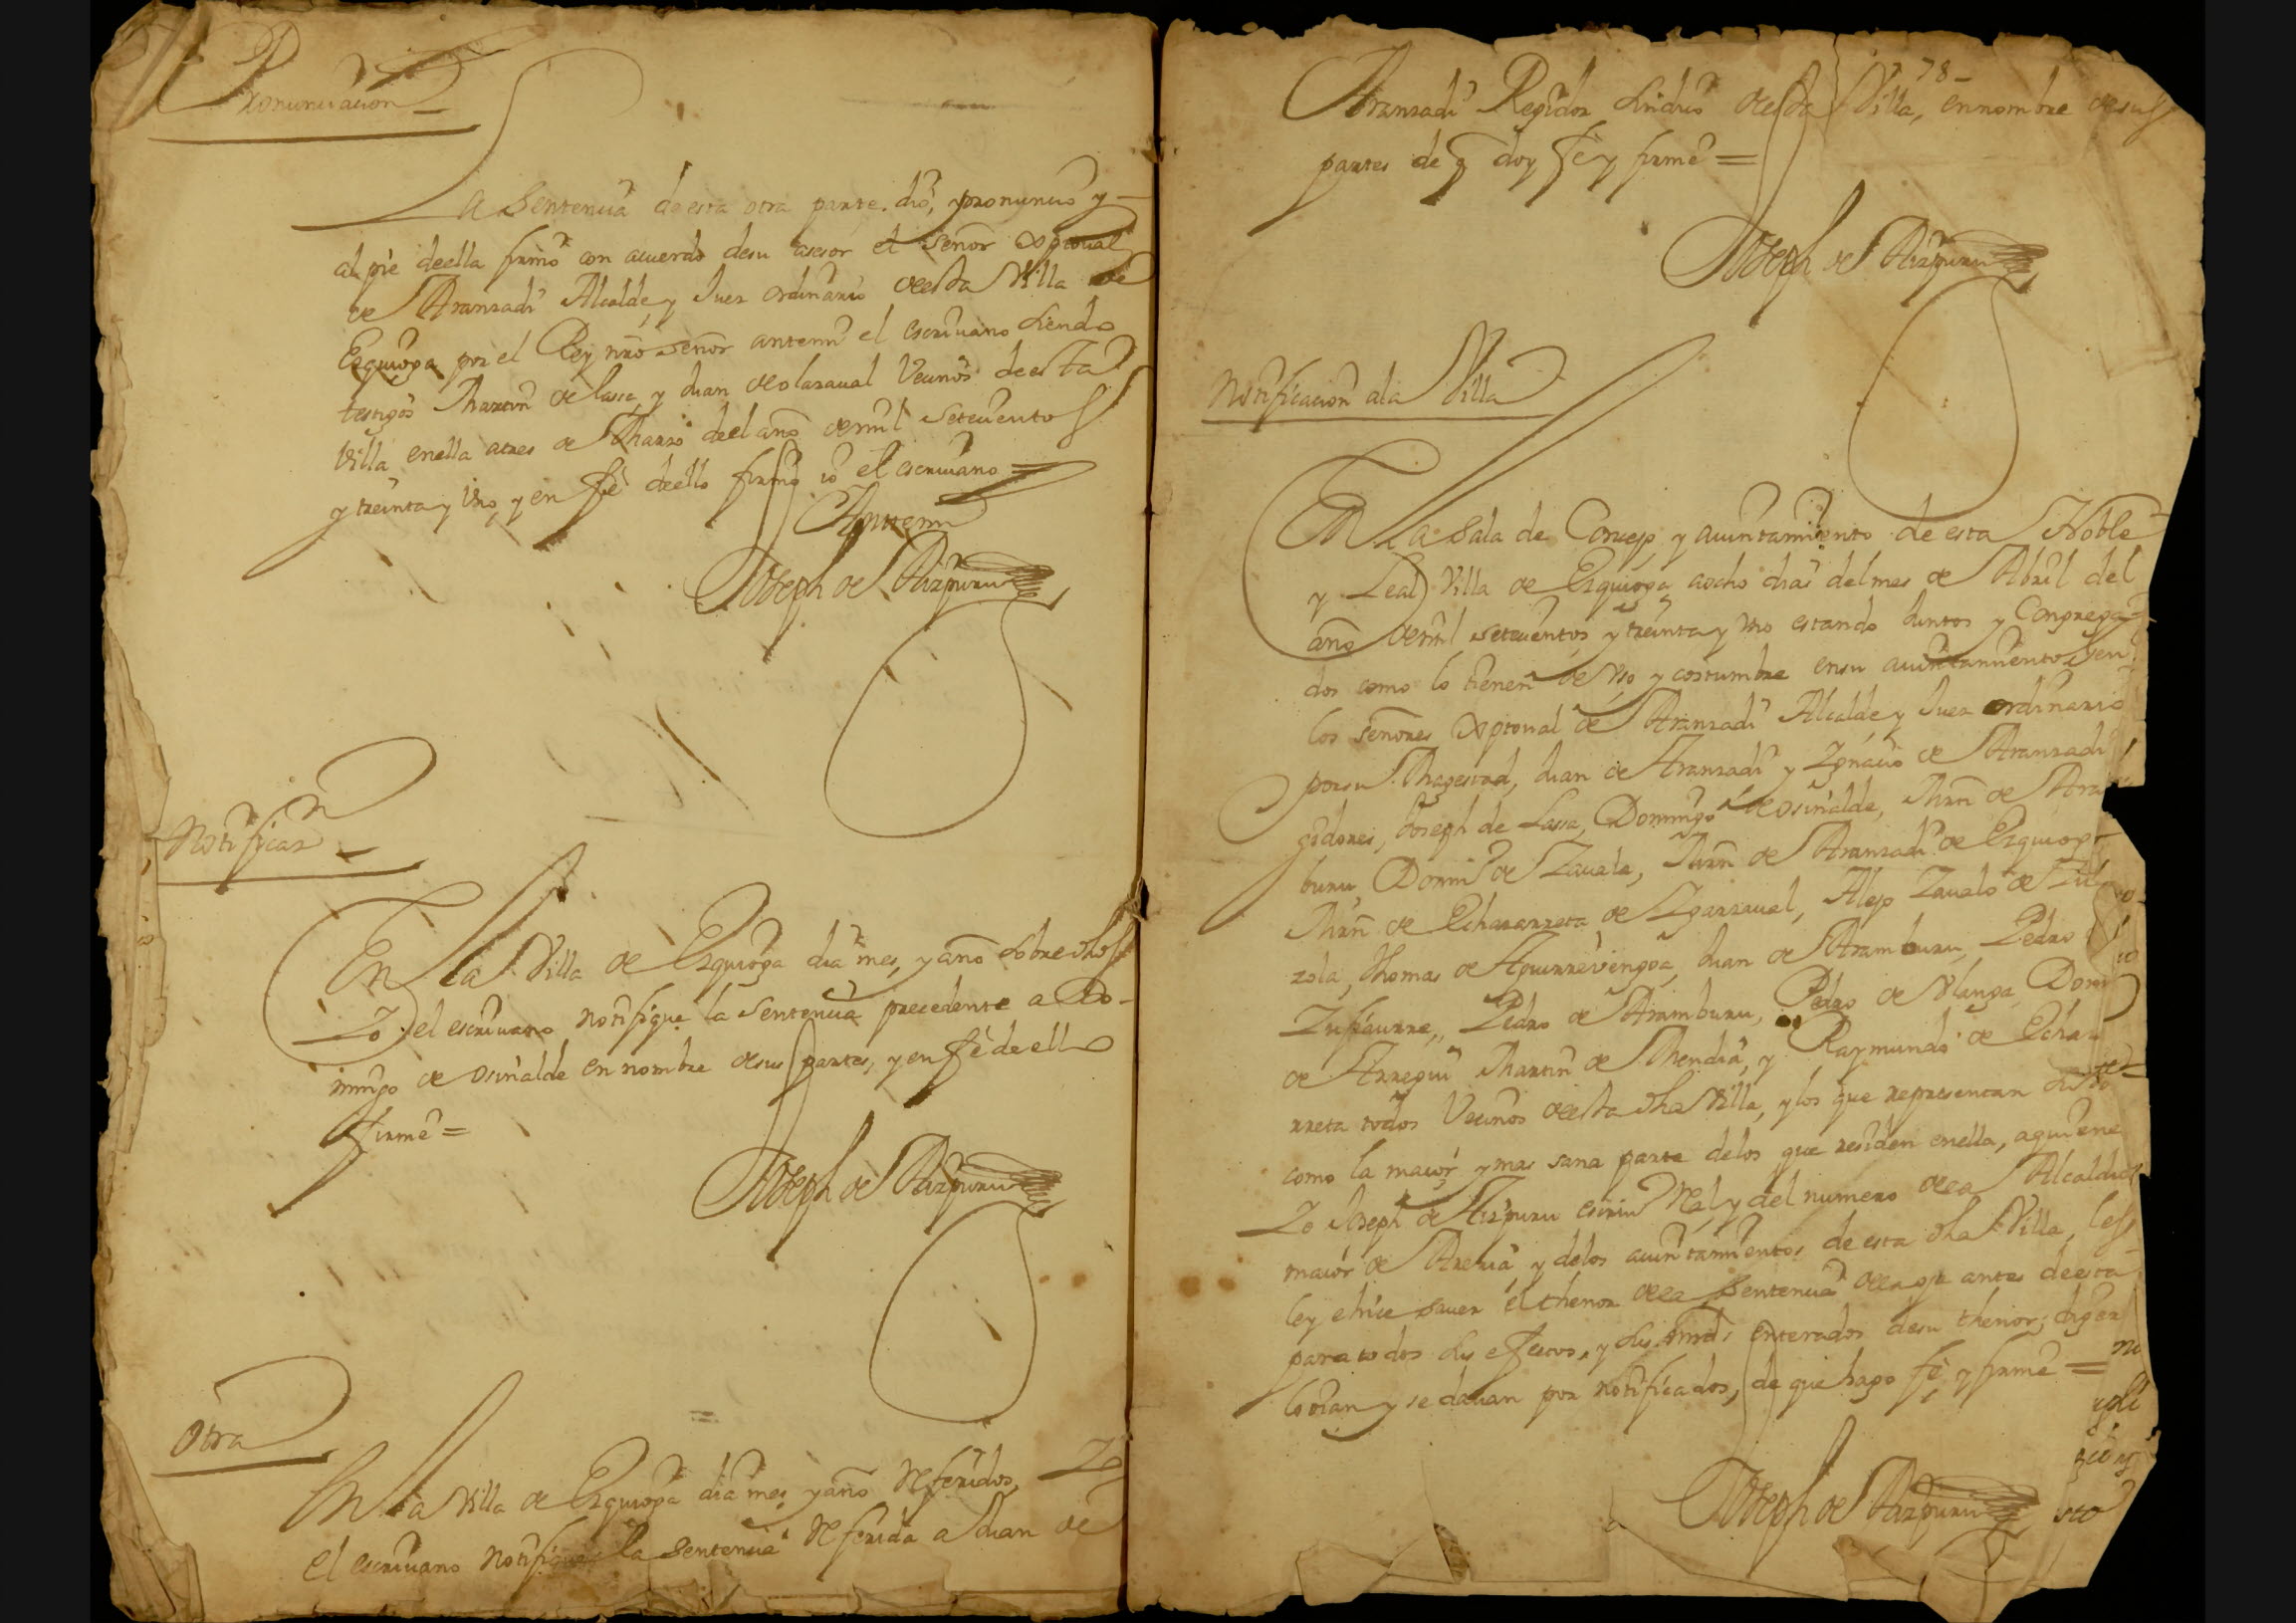 Pronunciacion
La Sentencia de esta otra parte. dió, y pronuncio y
al pie deella firmó con acuerdo desu asesor el señor Xptoual
de Aranzadi Alcalde, y Juez ordinario deesta Villa de
Ezquioga por el Rey nro señor antemi el escriuano siendo
testigos Martin de Lassa, y Juan de olasaual Vecinos de esta
Villa enella atres de Marzo deel año demil Setecientos
y treinta y Vno, y en fé deello firmé io el escriuano =
Antemi
Joseph de Aizpuru
Notificaz.n
En la Villa de Ezquioga dia mes, y año sobre dhos
Io el escriuano notifique la Sentencia precedente a Do-
mingo de osinalde en nombre desus partes, y en fé deello
firmé =
Joseph de Aizpuru
Otra
En la Villa de Ezquioga dia mes, y año Referidos, Io
el escriuano notifique la Sentencia Referida a Juan de
78
Aranzadi Regidor Sindico deesta Villa, en nombre desus
partes de q doy fé y firmé =
Joseph de Aizpuru
Notificacion ala Villa
En La Sala de Concejo, y auintamiento de esta Noble
y Leal Villa de Ezquioga, aocho dias delmes de Abril del
año demil setecientos, y treinta y Vno estando Juntos y Congrega-
dos como lo tienen de Vso y costumbre ensu auintamiento
los señores Xptoual de Aranzadi Alcalde, y Juez ordinario
porsu Magestad, Juan de Aranzadi y Ignacio de Aranzadi
gidores, Joseph de Lassa, Domingo de osinalde, Mrn de Aram
buru, Domi.o de Zauala, Mrn de Aranzadi de Ezquioga
Mrn de Echazarreta de Igarzaual, Alejo Zaualo de
zola, Thomas de Aguirrevengoa, Juan de Aramburu, Pedro
Zufiaurre, Pedro de Aramburu, Pedro de Alanga, Domi
de Arregui Martin de Mendia, y Raymundo de Echa
rreta todos Vecinos deesta dha Villa, y los que representan
como la maior, y mas sana parte delos que residen enella, aquiene
Io Joseph de Aizpuru escriu.o Rl, y del numero dela Alcaldia
maior de Areria, y delos auintamientos de esta dha Villa, les
ley ehice sauer el thenor dela Sentencia dela oja antes deesta
para todos sus efectos, y sus mrds enterados desu thenor; digeron
lo oian y se dauan por notificados, de que hago fé, y firmé =
Joseph de Aizpuru